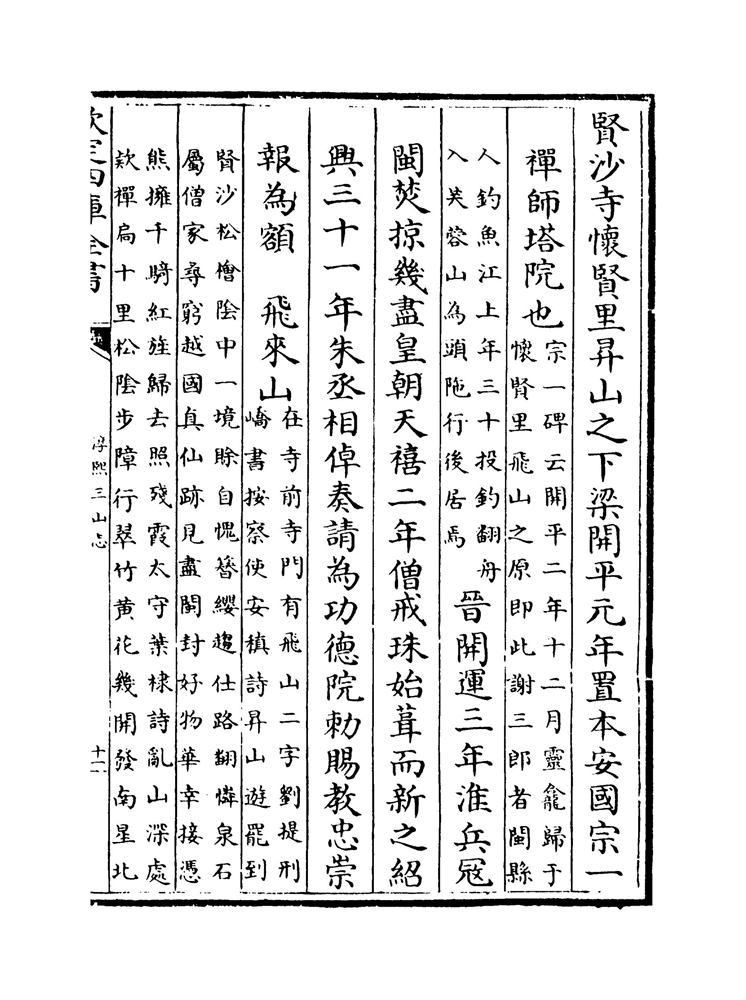 賢沙寺懷賢里昇山之下梁開平元年置本安國宗一
禪師塔院也
宗一碑云開平二年十二月靈龕歸于
懷賢里飛山之原即此謝三郎者閩縣
人釣魚江上年三十投釣翻舟
入芙蓉山為頭陁行後居焉
晉開運三年淮兵冦
閩焚掠幾盡皇朝天禧二年僧戒珠始葺而新之紹
興三十一年朱丞相倬奏請為功德院勅賜教忠崇
報為額　飛來山
在寺前寺門有飛山二字劉提刑
嶠書按察使安稹詩昇山遊罷到
賢沙松檜陰中一境賖自愧簪纓趨仕路翻憐泉石
屬僧家尋窮越國真仙跡見盡閩封好物華幸接憑
熊擁千騎紅旌歸去照殘霞太守葉棣詩亂山深處
欵禪扃十里松陰步障行翠竹黄花幾開發南星北
欽定四庫全書
淳熙三山志